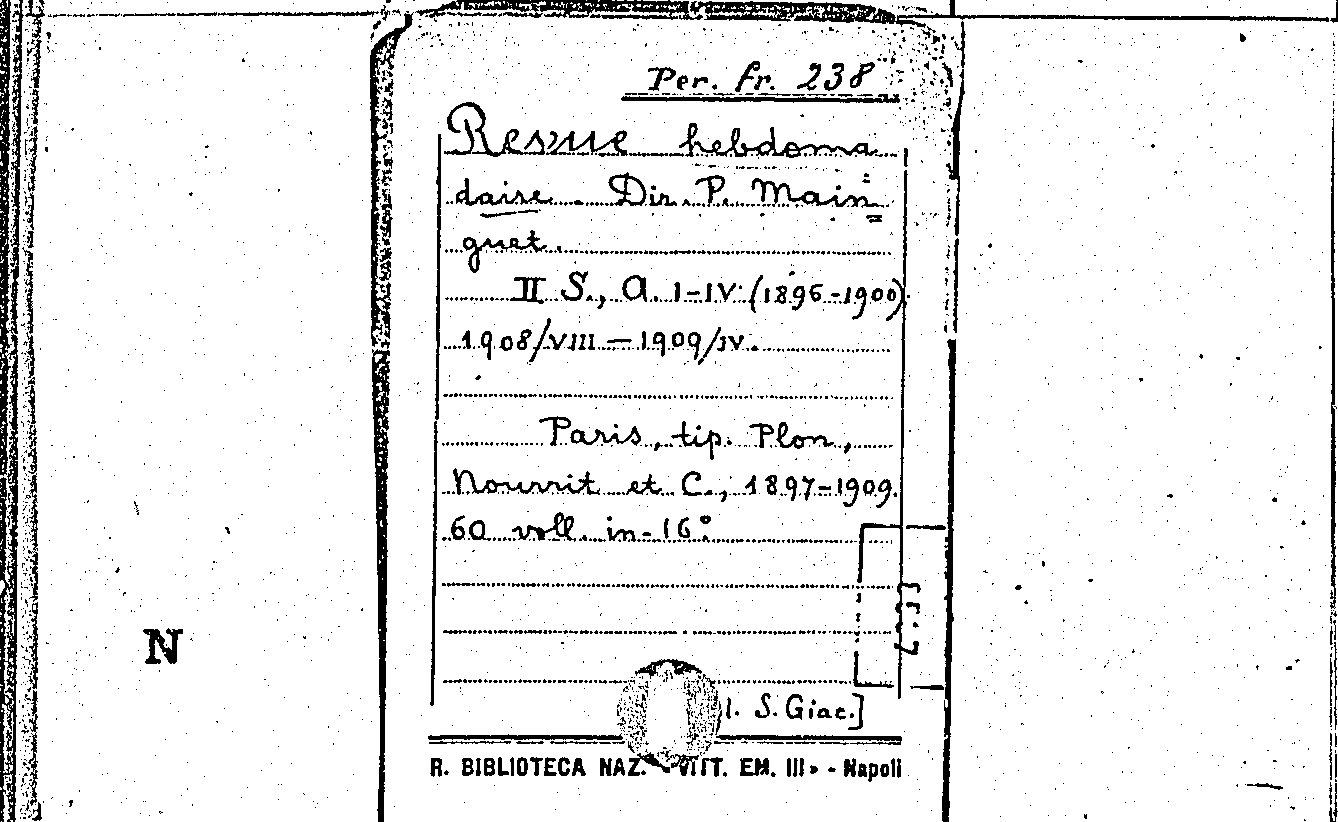 Per. fr. 238
Revue hebdoma
daire. Dir. P. Main=
guet.
II S., A. I-IV (1896-1900)
1908/VIII — 1909/IV.
Paris, tip. Plon,
Nourrit et C., 1897-1909.
60 voll. in-16°
N
l. S. Giac.]
R. BIBLIOTECA NAZ. « VITT. EM. III » - Napoli